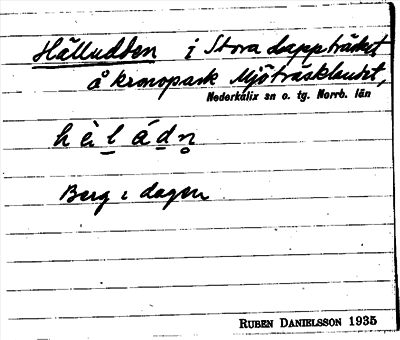 Hälludden i Stora Lappträsket
å kronopark Mjöträsklandet,
Nederkalix sn o. tg. Norrb. län
h è l á d n
Berg i dagen
RUBEN DANIELSSON 1935